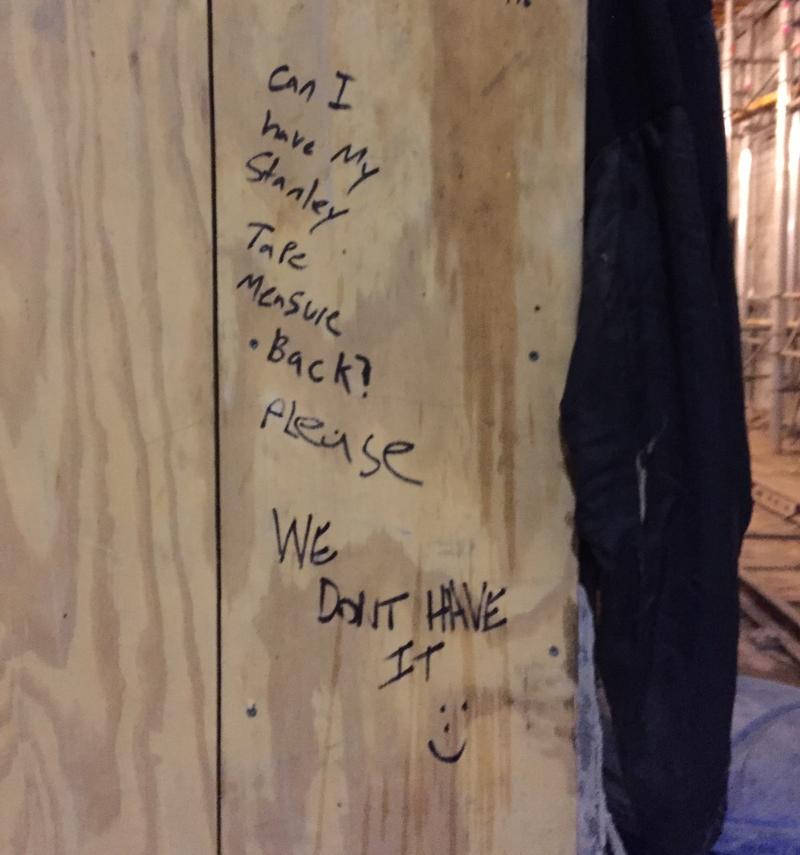 Can I
have My
Stanley
Tape
Measure
Back?
Please
WE
DONT HAVE
IT